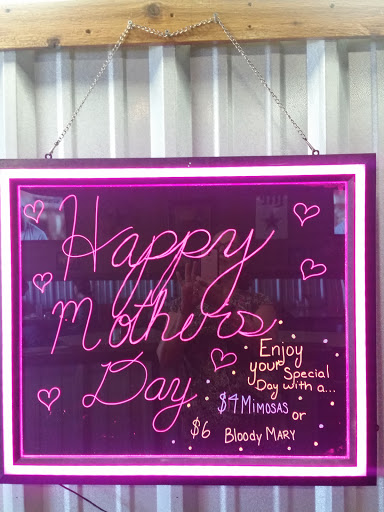 Happy
Mothers
Day
Enjoy
your Special
Day with a...
$4 Mimosas or
$6 Bloody Mary